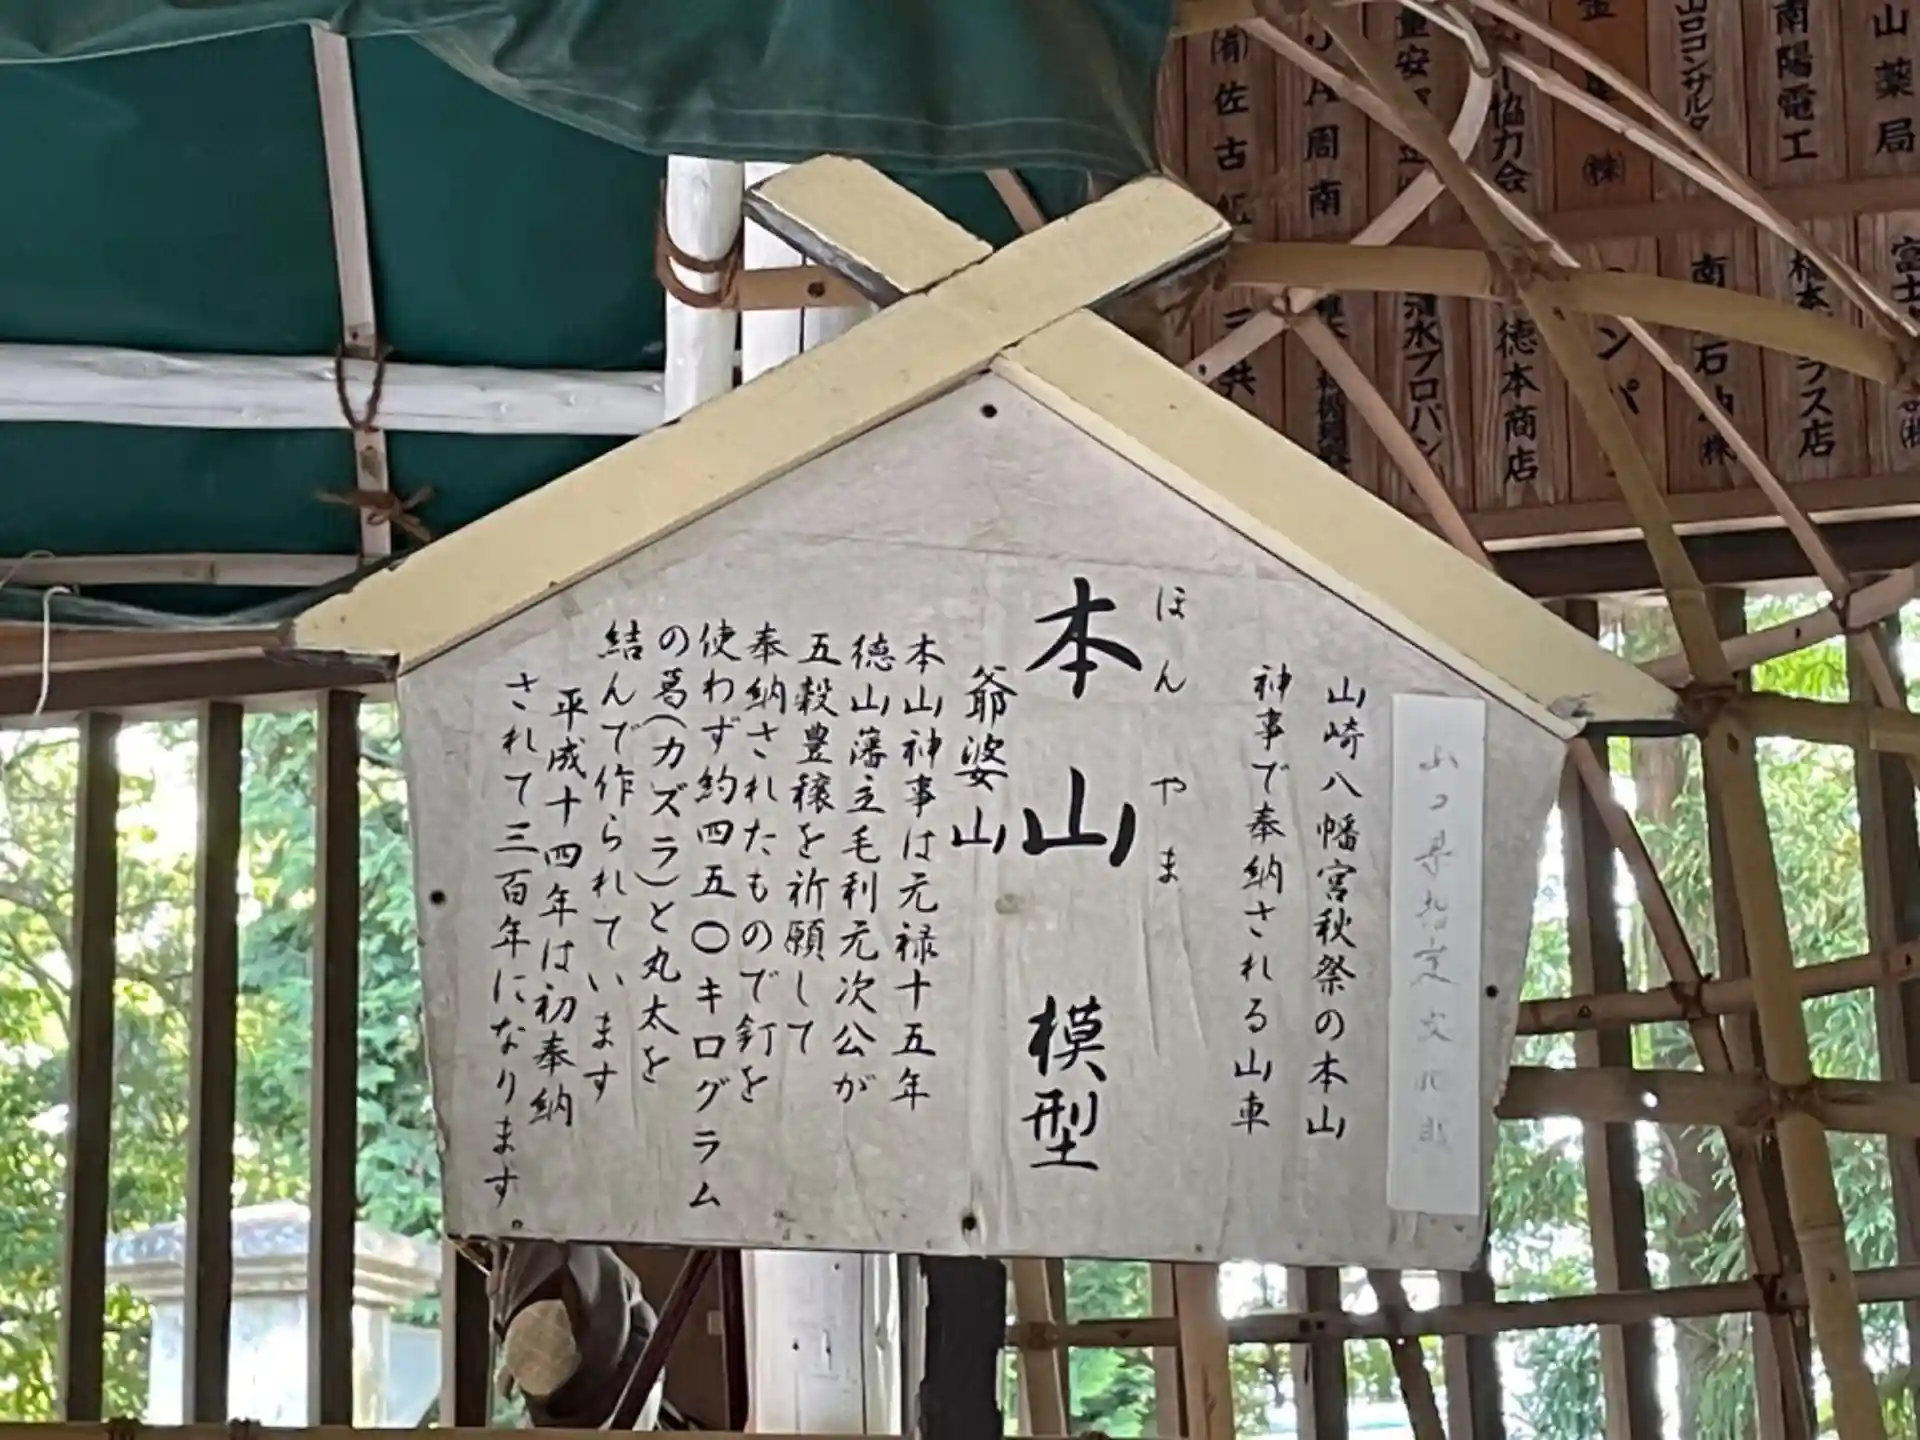 山口県指定文化財
山崎八幡宮秋祭の本山
神事で奉納される山車
ほんやま
本山 模型
爺婆山
本山神事は元禄十五年
徳山藩主毛利元次公が
五穀豊穣を祈願して
奉納されたもので釘を
使わず約四五〇キログラム
の葛(カズラ)と丸太を
結んで作られています
平成十四年は初奉納
されて三百年になります。
山薬局
南陽電工
山口コンサルタ
㈱
協力会
周南
㈲佐古
富士
ラス店
南
石油㈱
ンパ
徳本商店
清水フロパン
三共